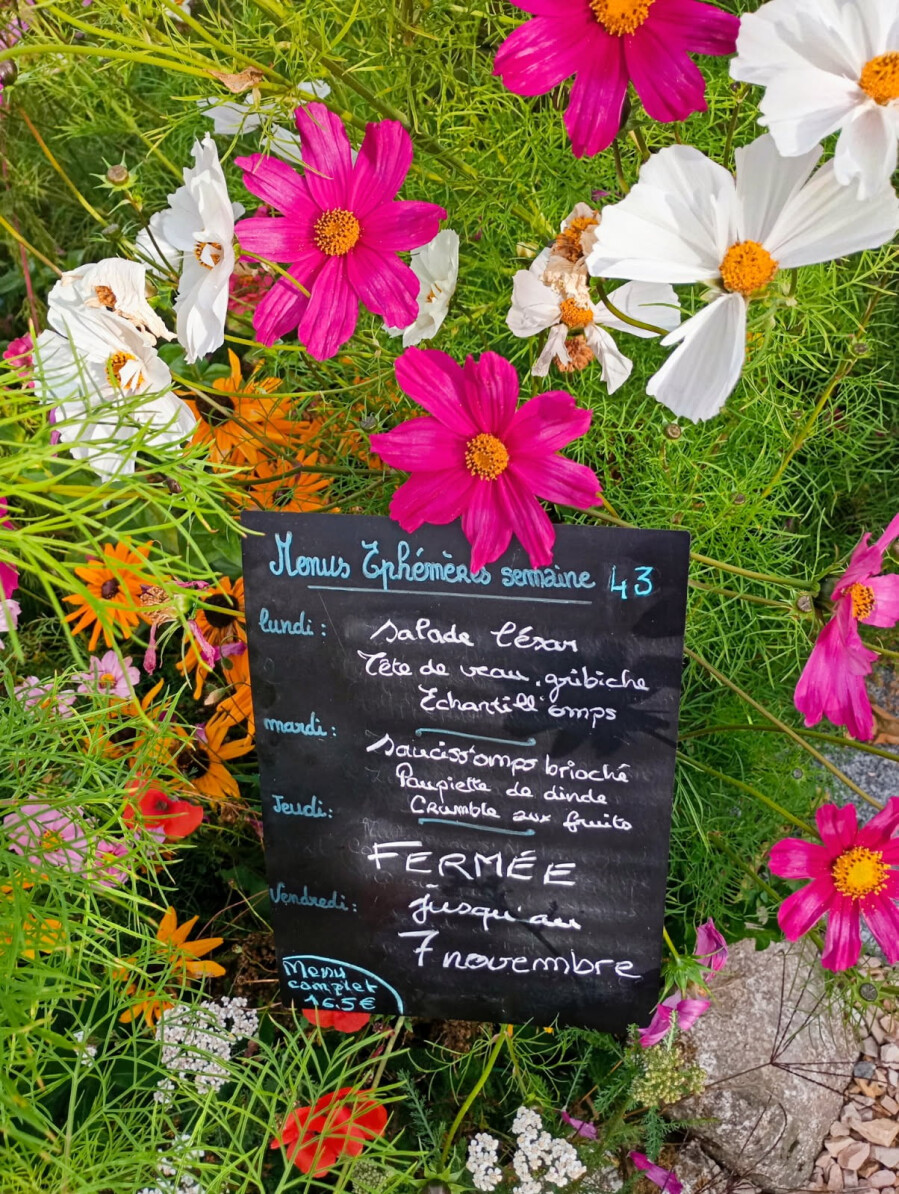 Menus Ephémères semaine 43
lundi :
Salade César
Tête de veau, gribiche
Echantill'omps
mardi :
Sauciss'omps brioché
Paupiette de dinde
Crumble aux fruits
Jeudi :
FERMÉE
jusqu'au
Vendredi :
7 novembre
Menu
complet
16,5€